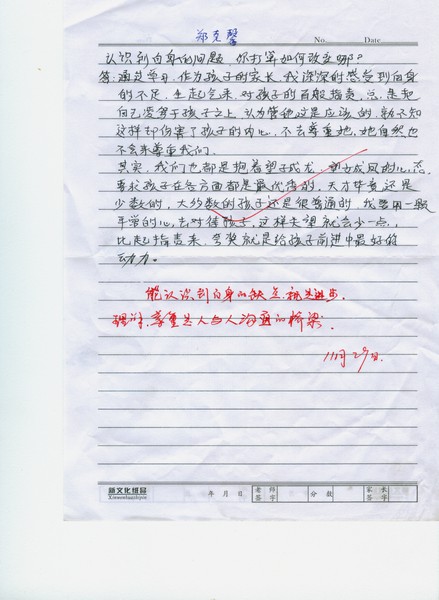 郑克馨
No. Date
认识到自身的问题，你打算如何改正哪？
答：通过学习，作为孩子的家长，我深深的感受到自身
的不足，生起气来，对孩子的百般指责，总是把
自己凌驾于孩子之上，认为管她这是应该的，就不知
这样却伤害了孩子的内心，不去尊重她，她自然也
不会来尊重我们。
其实，我们也都是抱着望子成龙，望女成凤的心态
要求孩子在各方面都是最优秀的，天才毕竟还是
少数的，大多数的孩子还是很普通的，我要用一颗
平常的心，去对待孩子，这样失望就会少一点，
比起指责来，夸奖就是给孩子前进中最好的
动力。
能认识到自身的缺点，就是进步。
理解、尊重是人与人沟通的桥梁。
11月29日
新文化纸品
Xinwenhuazhipin
年 月 日 老师签字 分数 家长签字